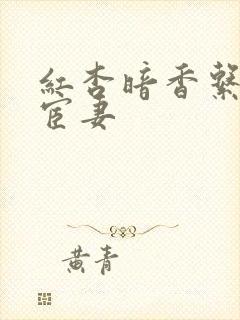 紅杏暗香繫
宦妻
黃青